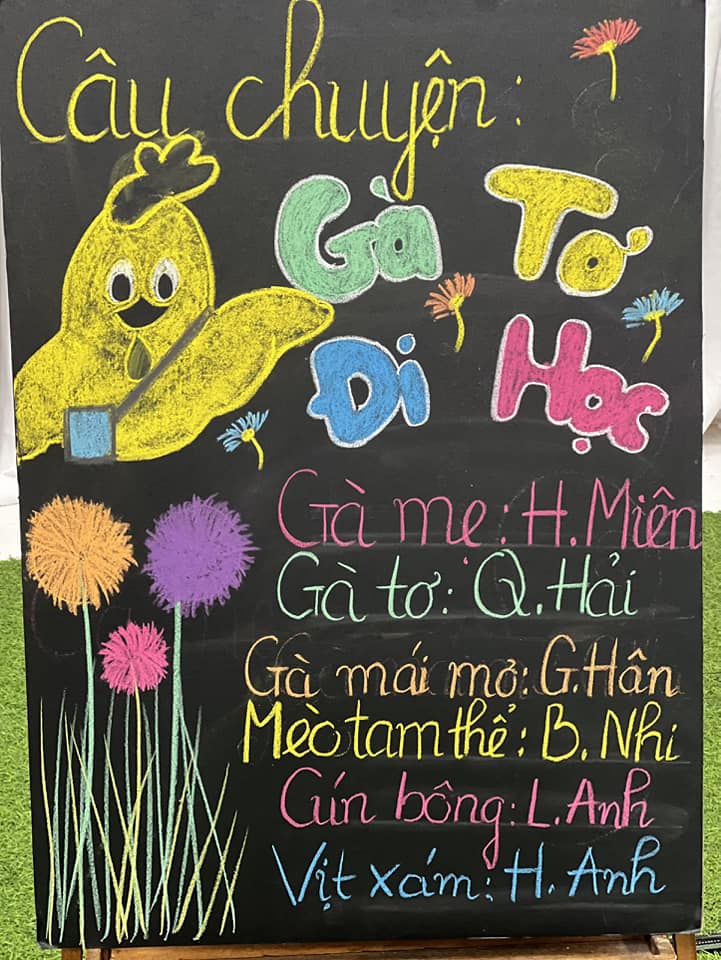 Câu chuyện:
Gà Tơ
Đi Học
Gà mẹ: H. Miên
Gà tơ: Q. Hải
Gà mái mơ: G. Hân
Mèo tam thể: B. Nhi
Cún bông: L. Anh
Vịt xám: H. Anh